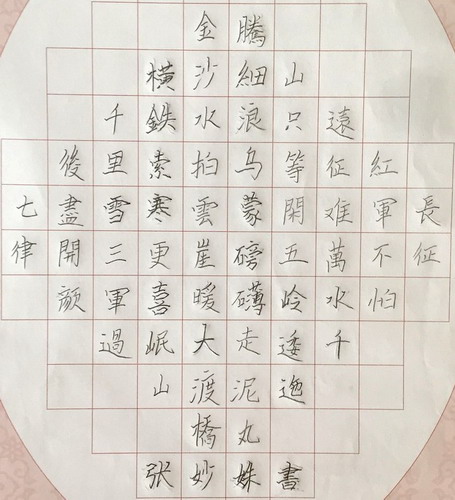 長征
紅軍不怕
遠征难萬水千
山只等閑五岭逶迤
騰細浪乌蒙磅礴走泥丸
金沙水拍雲崖暖大渡橋
横鉄索寒更喜岷山
千里雪三軍過
後盡開顔
七律
张妙姝書